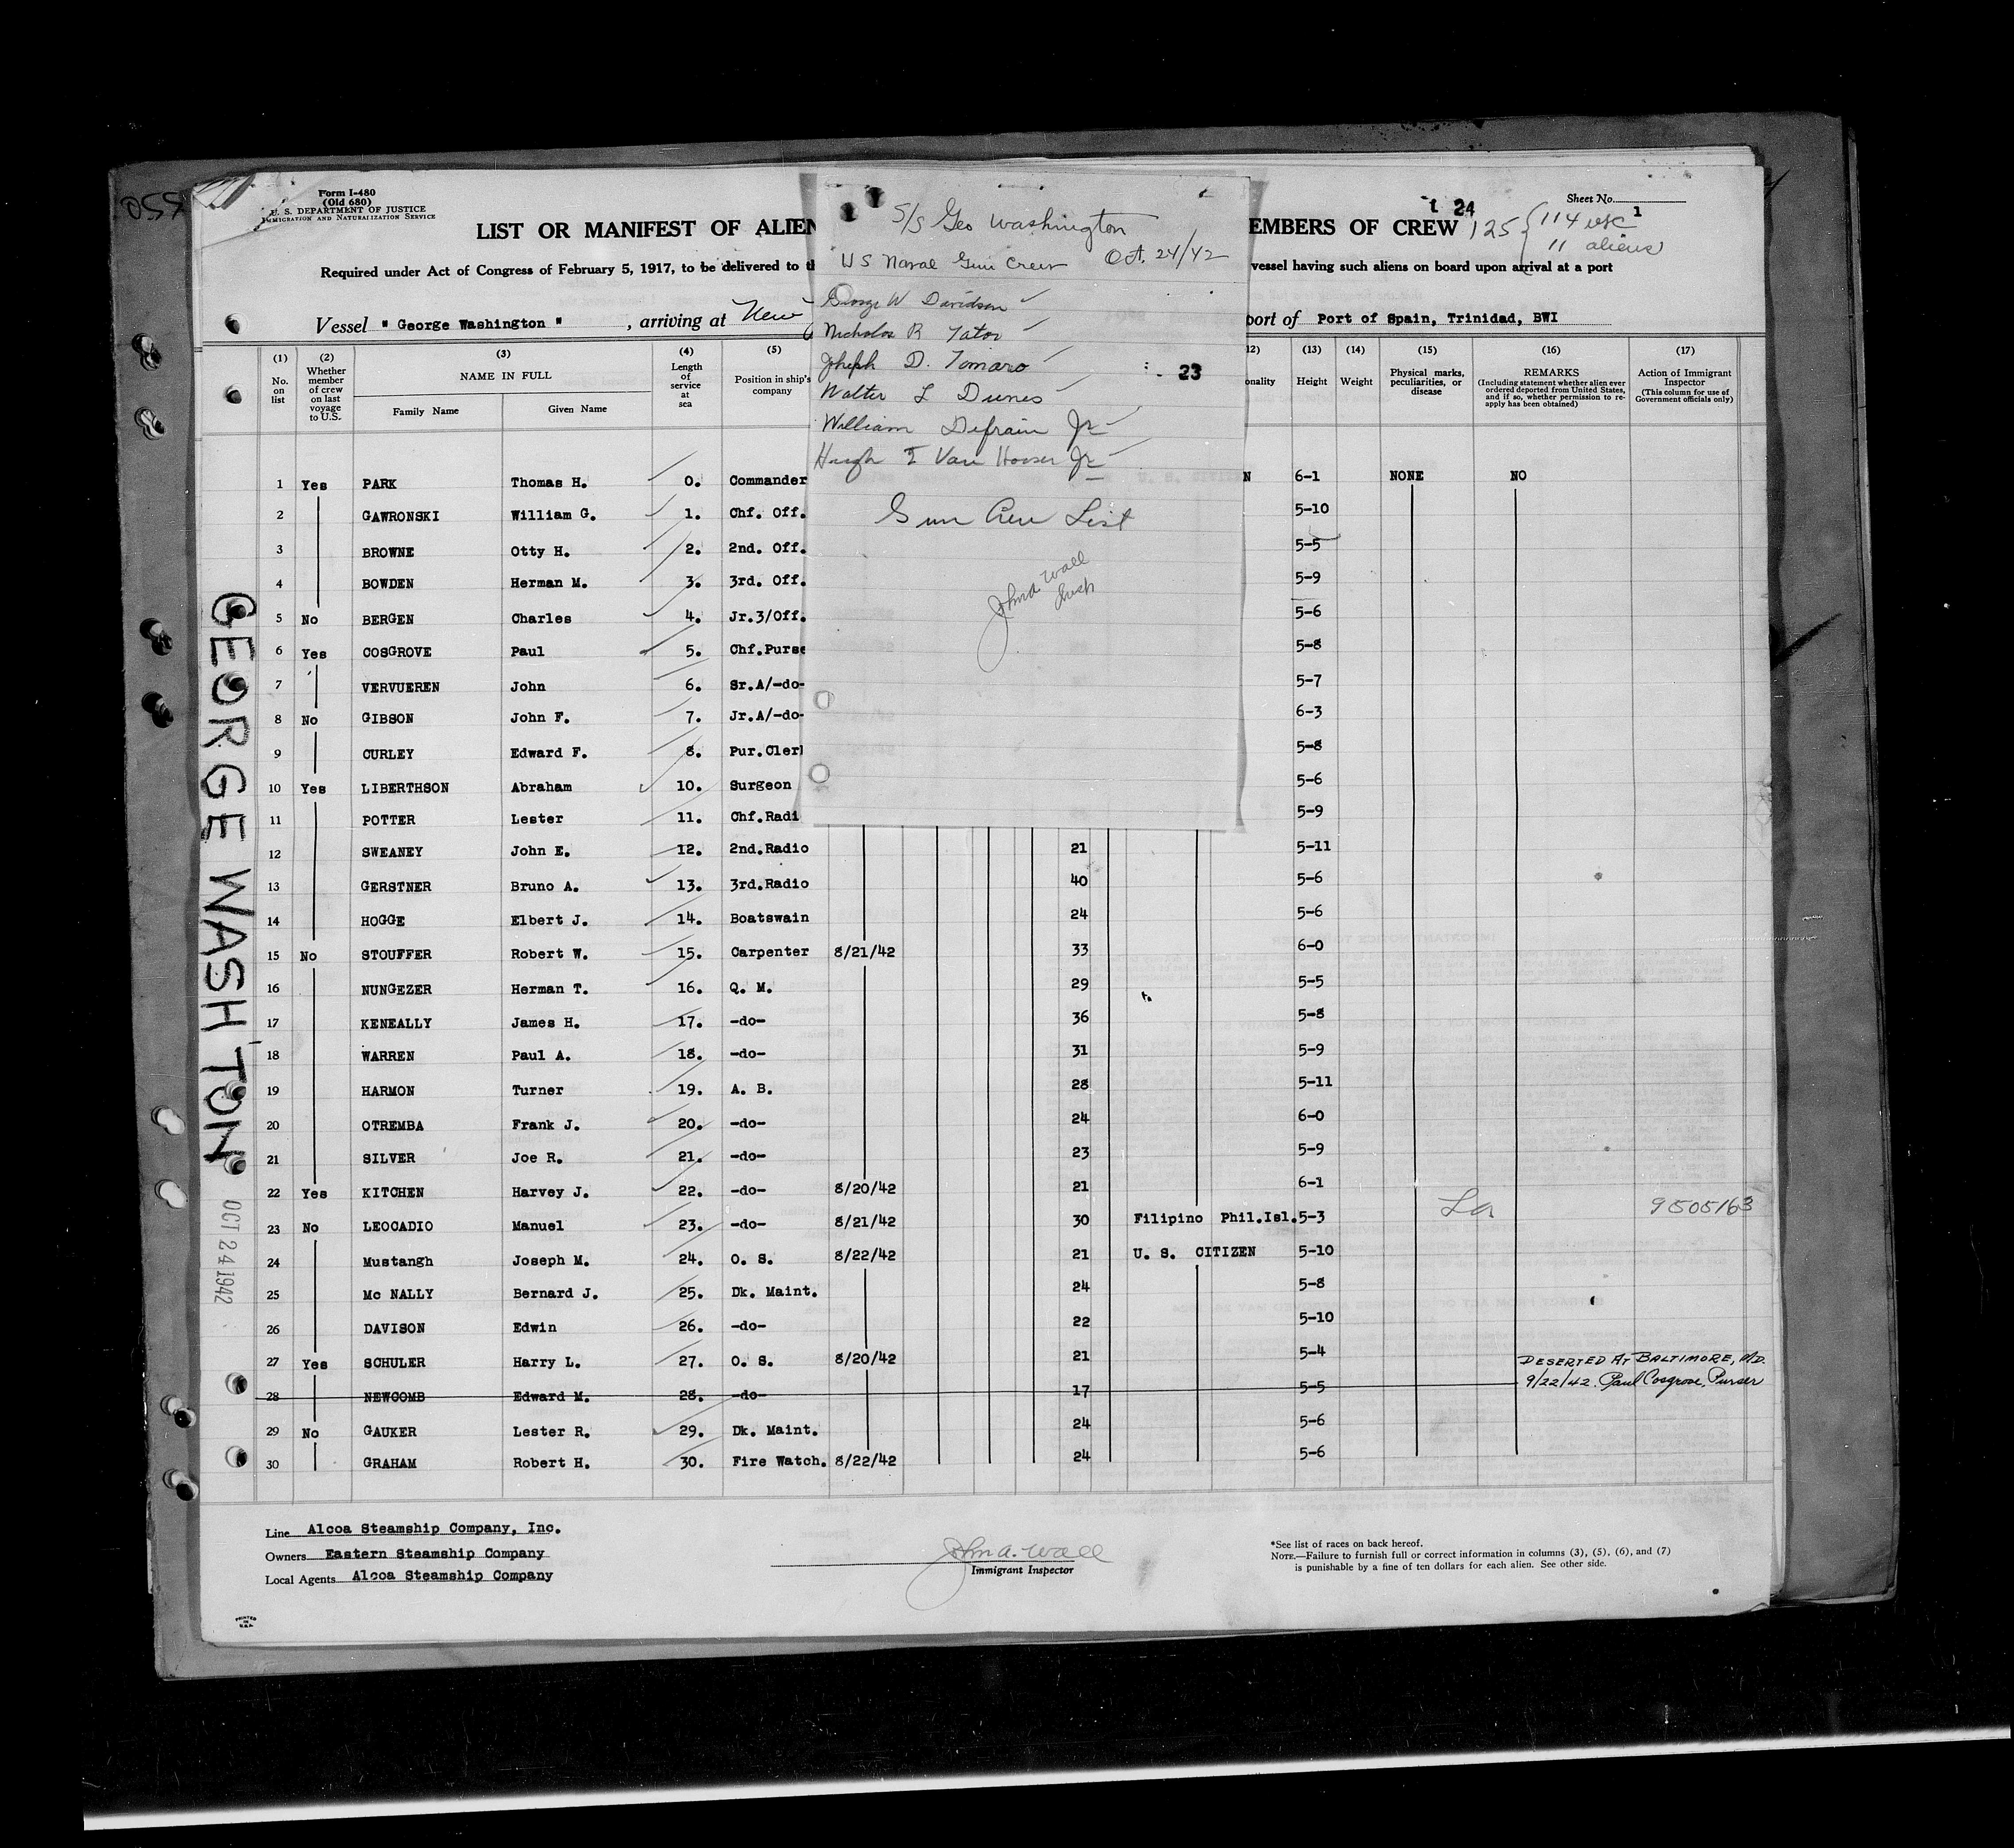 Form I-480
(Old 680)
U. S. DEPARTMENT OF JUSTICE
IMMIGRATION AND NATURALIZATION SERVICE
Sheet No. 1
LIST OR MANIFEST OF ALIEN
EMBERS OF CREW
24
125 { 114 usc
11 aliens
Required under Act of Congress of February 5, 1917, to be delivered to th
vessel having such aliens on board upon arrival at a port
Vessel " George Washington " , arriving at New
port of Port of Spain, Trinidad, BWI
S/S Geo Washington
US Naval Gun Crew Oct. 24/42
George W Davidson
Nicholas R Tator
Joseph D. Tomaro
Walter L Dunes
William Defrain Jr
Hugh E Van Hooser Jr
Gun Crew List
John A Wall
Insp
23
(1) No. on list
(2) Whether member of crew on last voyage to U.S.
(3) NAME IN FULL
Family Name Given Name
(4) Length of service at sea
(5) Position in ship's company
12) onality
(13) Height
(14) Weight
(15) Physical marks, peculiarities, or disease
(16) REMARKS (Including statement whether alien ever ordered deported from United States, and if so, whether permission to reapply has been obtained)
(17) Action of Immigrant Inspector (This column for use of Government officials only)
1 Yes PARK Thomas H. 0. Commander N 6-1 NONE NO
2 GAWRONSKI William G. 1. Chf. Off. 5-10
3 BROWNE Otty H. 2. 2nd. Off. 5-5
4 BOWDEN Herman M. 3. 3rd. Off. 5-9
5 No BERGEN Charles 4. Jr.3/Off. 5-6
6 Yes COSGROVE Paul 5. Chf.Purse 5-8
7 VERVUEREN John 6. Sr.A/-do- 5-7
8 No GIBSON John F. 7. Jr.A/-do- 6-3
9 CURLEY Edward F. 8. Pur.Cler 5-8
10 Yes LIBERTHSON Abraham 10. Surgeon 5-6
11 POTTER Lester 11. Chf.Radi 5-9
12 SWEANEY John E. 12. 2nd.Radio 21 5-11
13 GERSTNER Bruno A. 13. 3rd.Radio 40 5-6
14 HOGGE Elbert J. 14. Boatswain 24 5-6
15 No STOUFFER Robert W. 15. Carpenter 8/21/42 33 6-0
16 NUNGEZER Herman T. 16. Q. M. 29 5-5
17 KENEALLY James H. 17. -do- 36 5-8
18 WARREN Paul A. 18. -do- 31 5-9
19 HARMON Turner 19. A. B. 28 5-11
20 OTREMBA Frank J. 20. -do- 24 6-0
21 SILVER Joe R. 21. -do- 23 5-9
22 Yes KITCHEN Harvey J. 22. -do- 8/20/42 21 6-1
23 No LEOCADIO Manuel 23. -do- 8/21/42 30 Filipino Phil.Isl. 5-3 La 9505163
24 Mustangh Joseph M. 24. O. S. 8/22/42 21 U. S. CITIZEN 5-10
25 Mc NALLY Bernard J. 25. Dk. Maint. 24 5-8
26 DAVISON Edwin 26. -do- 22 5-10
27 Yes SCHULER Harry L. 27. O. S. 8/20/42 21 5-4
28 NEWCOMB Edward M. 28. -do- 17 5-5 DESERTED AT BALTIMORE, MD.
9/22/42. Paul Cosgrove, Purser
29 No GAUKER Lester R. 29. Dk. Maint. 24 5-6
30 GRAHAM Robert H. 30. Fire Watch. 8/22/42 24 5-6
GEORGE WASHINGTON
OCT 24 1942
Line Alcoa Steamship Company, Inc.
Owners Eastern Steamship Company
Local Agents Alcoa Steamship Company
John A. Wall
Immigrant Inspector
*See list of races on back hereof.
NOTE.—Failure to furnish full or correct information in columns (3), (5), (6), and (7)
is punishable by a fine of ten dollars for each alien. See other side.
PRINTED
IN
U.S.A.